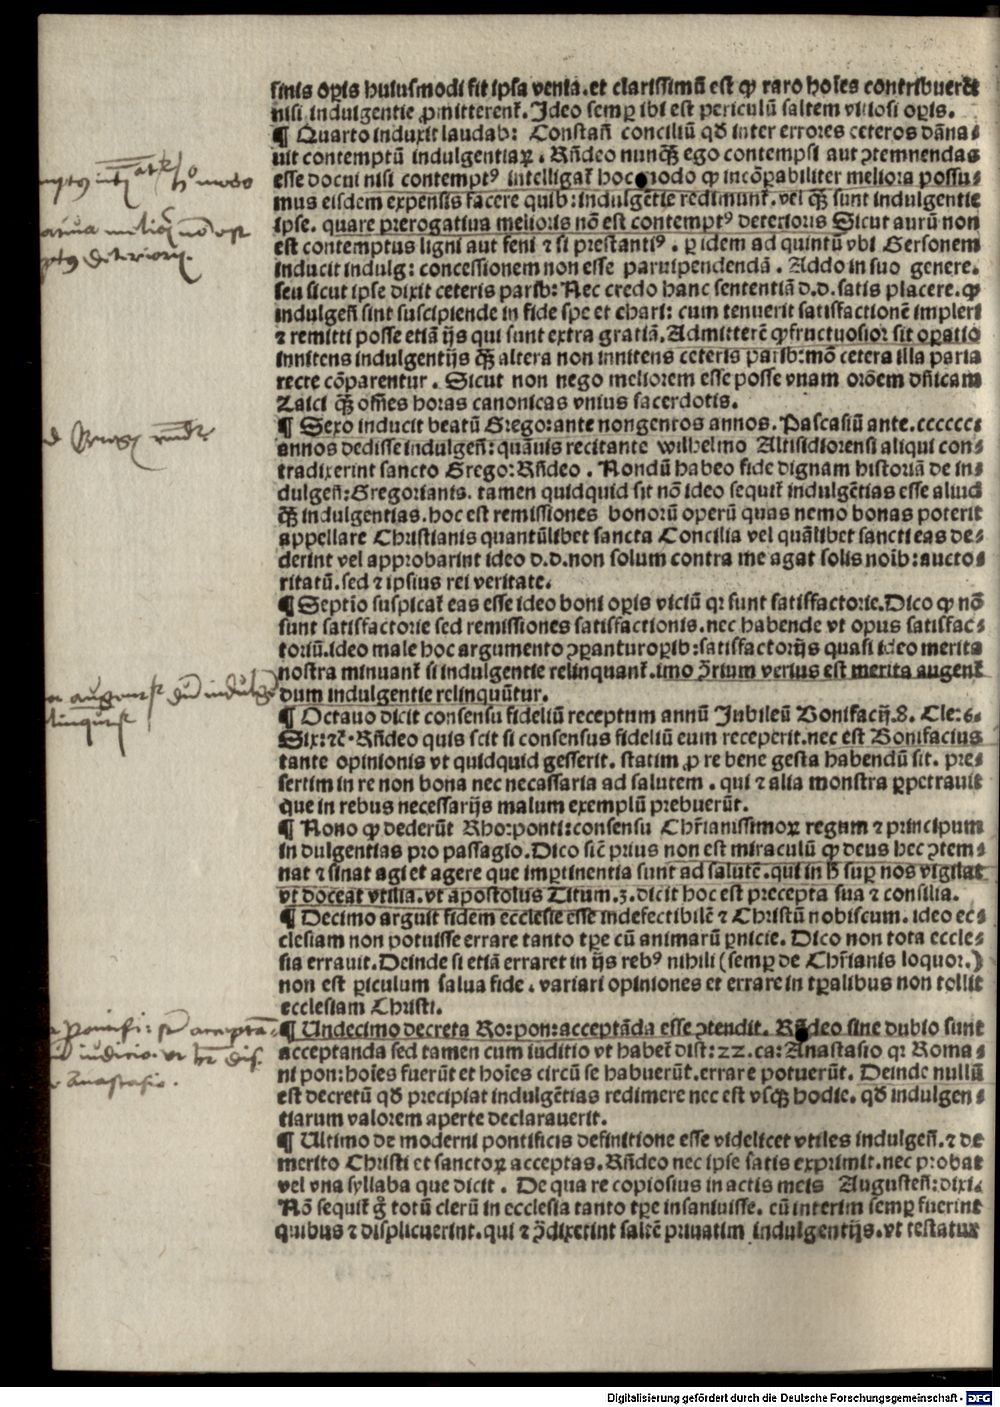 finis oꝑis huiusmodi sit ipsa venia.et clarissimū est ꝙ raro hoīes contribuerēt
nisi indulgentie ꝓmitterent̄. Ideo semꝑ ibi est periculū saltem vitiosi oꝑis.
¶ Quarto induxit laudab: Constañ conciliū qđ inter errores ceteros dāna⸗
uit contemptū indulgentiaꝝ. Rñdeo nunqꝫ̄ ego contempsi aut ꝯtemnendas
esse docui nisi contemptꝰ intelligat̄ hoc modo ꝙ incōꝑabiliter meliora possu⸗
mus eisdem expensis facere quib:indulgētie redimunt̄. vel qꝫ̄ sunt indulgentie
ipse. quare prerogatiua melioris nō est contemptꝰ deterioris Sicut aurū non
est contemptus ligni aut feni ⁊ si prestantiꝰ. ꝑ idem ad quintū vbi Gersonem
inducit indulg: concessionem non esse paruipendendā. Addo in suo genere.
seu sicut ipse dixit ceteris parib: Nec credo hanc sententiā d.d.satis placere.ꝙ
indulgeñ sint suscipiende in fide spe et chari: cum tenuerit satisfactionē impleri
⁊ remitti posse etiā ijs qui sunt extra gratiā.Admitterē ꝙ fructuosior sit oꝑatio
innitens indulgentijs qꝫ̄ altera non innitens ceteris parib:mō cetera illa paria
recte cōparentur. Sicut non nego meliorem esse posse vnam orōem dñicam
Laici qꝫ̄ oñes horas canonicas vnius sacerdotis.
¶ Sexo inducit beatū Grego:ante nongentos annos. Pascasiū ante.cccccc⸗
annos dedisse indulgeñ: quāuis recitante wilhelmo Altisidiorensi aliqui con⸗
tradixerint sancto Grego:Rñdeo. Nondū habeo fide dignam historiā de in⸗
dulgeñ:Gregorianis. tamen quidquid sit nō ideo sequit̄ indulgētias esse aliud
qꝫ̄ indulgentias.hoc est remissiones bonorū operū quas nemo bonas poterit
appellare Christianis quantūlibet sancta Concilia vel quālibet sancti eas de⸗
derint vel approbarint ideo d.d.non solum contra me agat solis noīb:aucto⸗
ritatū.sed ⁊ ipsius rei veritate.
¶ Septīo suspicat̄ eas esse ideo boni oꝑis viciū qꝛ sunt satisfactorie.Dico ꝙ nō
sunt satisfactorie sed remissiones satisfactionis.nec habende vt opus satisfac⸗
toriū.ideo male hoc argumento ꝯꝑantur oꝑib:satisfactorijs quasi ideo merita
nostra minuant̄ si indulgentie relinquant̄.imo ꝯ̄rium verius est merita augent̄
dum indulgentie relinquūtur.
¶ Octauo dicit consensu fideliū receptum annū Jubileū Bonifacij.8. Cle:6.
Six:⁊c̄. Rñdeo quis scit si consensus fideliū eum receperit.nec est Bonifacius
tante opinionis vt quidquid gesserit. statim ꝓ re bene gesta habendū sit. pre⸗
sertim in re non bona nec necessaria ad salutem. qui ⁊ alia monstra ꝑpetrauit
que in rebus necessarijs malum exemplū prebuerūt.
¶ Nono ꝙ dederūt Rho:ponti:consensu Chr̄ianissimoꝝ regum ⁊ principum
indulgentias pro passagio.Dico sic̄ prius non est miraculū ꝙ deus hec ꝯtem⸗
nat ⁊ sinat agi et agere que imꝑtinentia sunt ad salutē.qui in ꝑ suꝑ nos vigilat
vt doceat vtilia.vt apostolus Titum.3.dicit hoc est precepta sua ⁊ consilia.
¶ Decimo arguit fidem ecclesie esse indefectibilē ⁊ Christū nobiscum.ideo ec⸗
clesiam non potuisse errare tanto tꝑe cū animarū ꝑnicie. Dico non tota eccle⸗
sia errauit.Deinde si etiā erraret in ijs rebꝰ nihili (semꝑ de Chr̄ianis loquor.)
non est ꝑiculum salua fide. variari opiniones et errare in tꝑalibus non tollit
ecclesiam Christi.
¶ Undecimo decreta Ro:pon:acceptāda esse ꝯtendit. Rñdeo sine dubio sunt
acceptanda sed tamen cum iuditio vt habet̄ dist:22.ca:Anastasio qꝛ Roma⸗
ni pon:hoīes fuerūt et hoīes circū se habuerūt.errare potuerūt. Deinde nullū
est decretū qđ precipiat indulgētias redimere nec est vsqꝫ hodie.qđ indulgen⸗
tiarum valorem aperte declarauerit.
¶ Ultimo de moderni pontificis definitione esse videlicet vtiles indulgeñ.⁊ de
merito Christi et sanctoꝝ acceptas.Rñdeo nec ipse satis exprimit.nec probat
vel vna syllaba que dicit. De qua re copiosius in actis meis Augusteñ:dixi.
Nō sequit̄ g̊ totū clerū in ecclesia tanto tꝑe insaniuisse. cū interim semꝑ fuerint
quibus ⁊ displicuerint.qui ⁊ ꝯ̄dixerint saltē priuatim indulgentijs.vt testatur
Digitalisierung gefördert durch die Deutsche Forschungsgemeinschaft - DFG